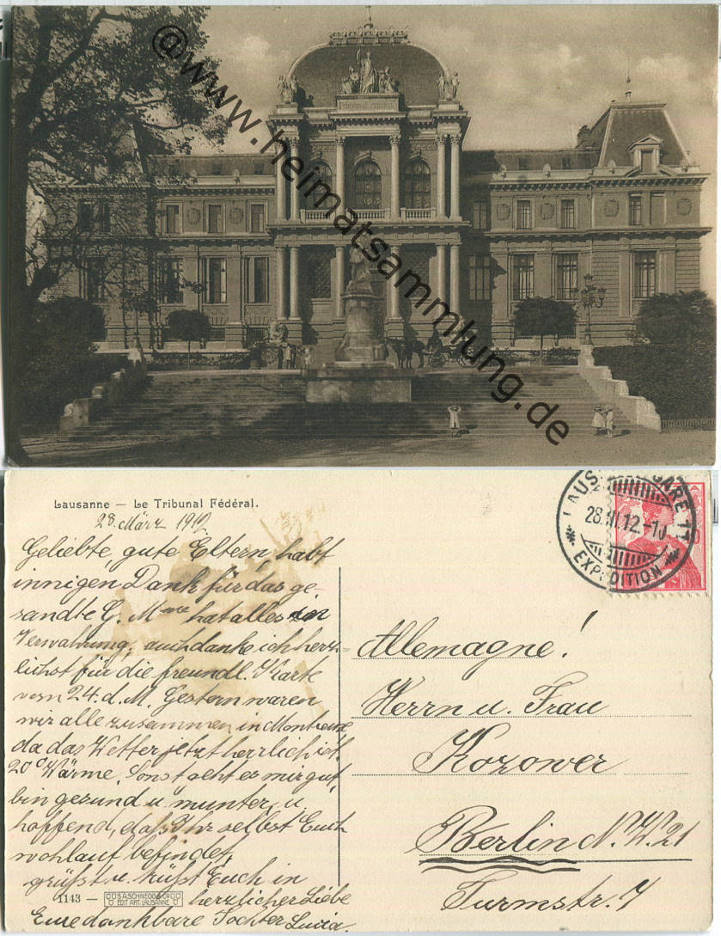 @www.heimatsammlung.de
Lausanne — Le Tribunal Fédéral.
28. März 1912
Geliebte, gute Eltern, habt
innigen Dank für das ge-
sandte G. Mme hat alles in
Verwahrung, auch danke ich herz-
lichst für die freundl. Karte
vom 24. d. M. Gestern waren
wir alle zusammen in Montreux
da das Wetter jetzt herrlich ist.
20° Wärme. Sonst geht es mir gut,
bin gesund u. munter, u.
hoffend, daß Ihr selbst Euch
wohlauf befindet,
grüßt u. küßt Euch in
herzlicher Liebe
Eure dankbare Tochter Lucia.
1143 —
LAUS GARE 11
28.III.12.-10
EXPEDITION
Allemagne!
Herrn u. Frau
Kozower
Berlin N.W. 21
Turmstr. 7